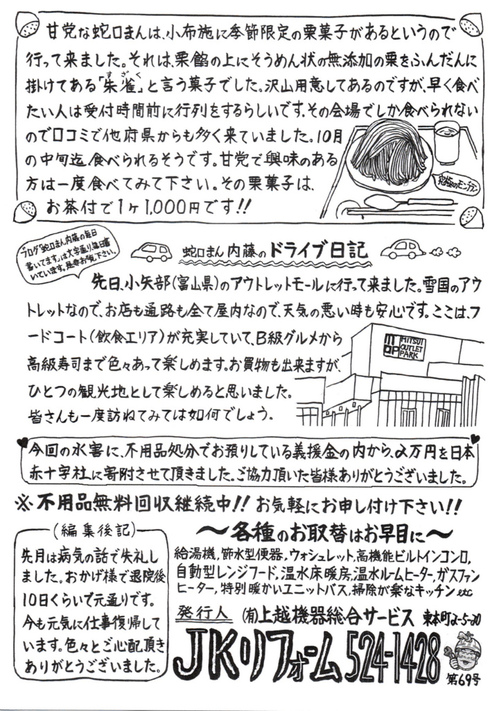 甘党な蛇口まんは、小布施に季節限定の栗菓子があるというので
行って来ました。それは、栗餡の上にそうめん状の無添加の栗をふんだんに
掛けてある「朱雀」と言う菓子でした。沢山用意してあるのですが、早く食べ
たい人は受付時間前に行列をするらしいです。その会場でしか食べられない
ので口コミで他府県からも多く来ていました。10月
の中旬迄食べられるそうです。甘党で興味のある
方は一度食べてみて下さい。その栗菓子は、
お茶付で1ヶ1,000円です!!
ブログ「蛇口まん内藤の毎日
蛇口まん内藤のドライブ日記
先日、小矢部(富山県)のアウトレットモールに行って来ました。雪国のアウ
トレットなので、お店も通路も全て屋内なので、天気の悪い時も安心です。ここは、フ
ードコート(飲食エリア)が充実していて、B級グルメから
高級寿司まで色々あって楽しめます。お買物も出来ますが、
ひとつの観光地として楽しめると思いました。
皆さんも一度訪ねてみては如何でしょう。
MOP
MITSUI
OUTLET
PARK
今回の水害に、不用品処分でお預りしている義援金の内から、2万円を日本
赤十字社に寄附させて頂きました。ご協力頂いた皆様ありがとうございました。
※不用品無料回収継続中!! お気軽にお申し付け下さい!!
(編集後記)
先月は病気の話で失礼し
ました。おかげ様で退院後
10日くらいで元通りです。
今も元気に仕事復帰して
います。色々とご心配頂き
ありがとうございました。
〜各種のお取替はお早目に〜
給湯機,節水型便器,ウォシュレット,高機能ビルトインコンロ,
自動型レンジフード,温水床暖房,温水ルームヒーター,ガスファン
ヒーター,特別暖かいユニットバス,掃除が楽なキッチン etc
発行人 (有)上越機器総合サービス 東本町2-5-20
JKリフォーム 524-1428
第69号